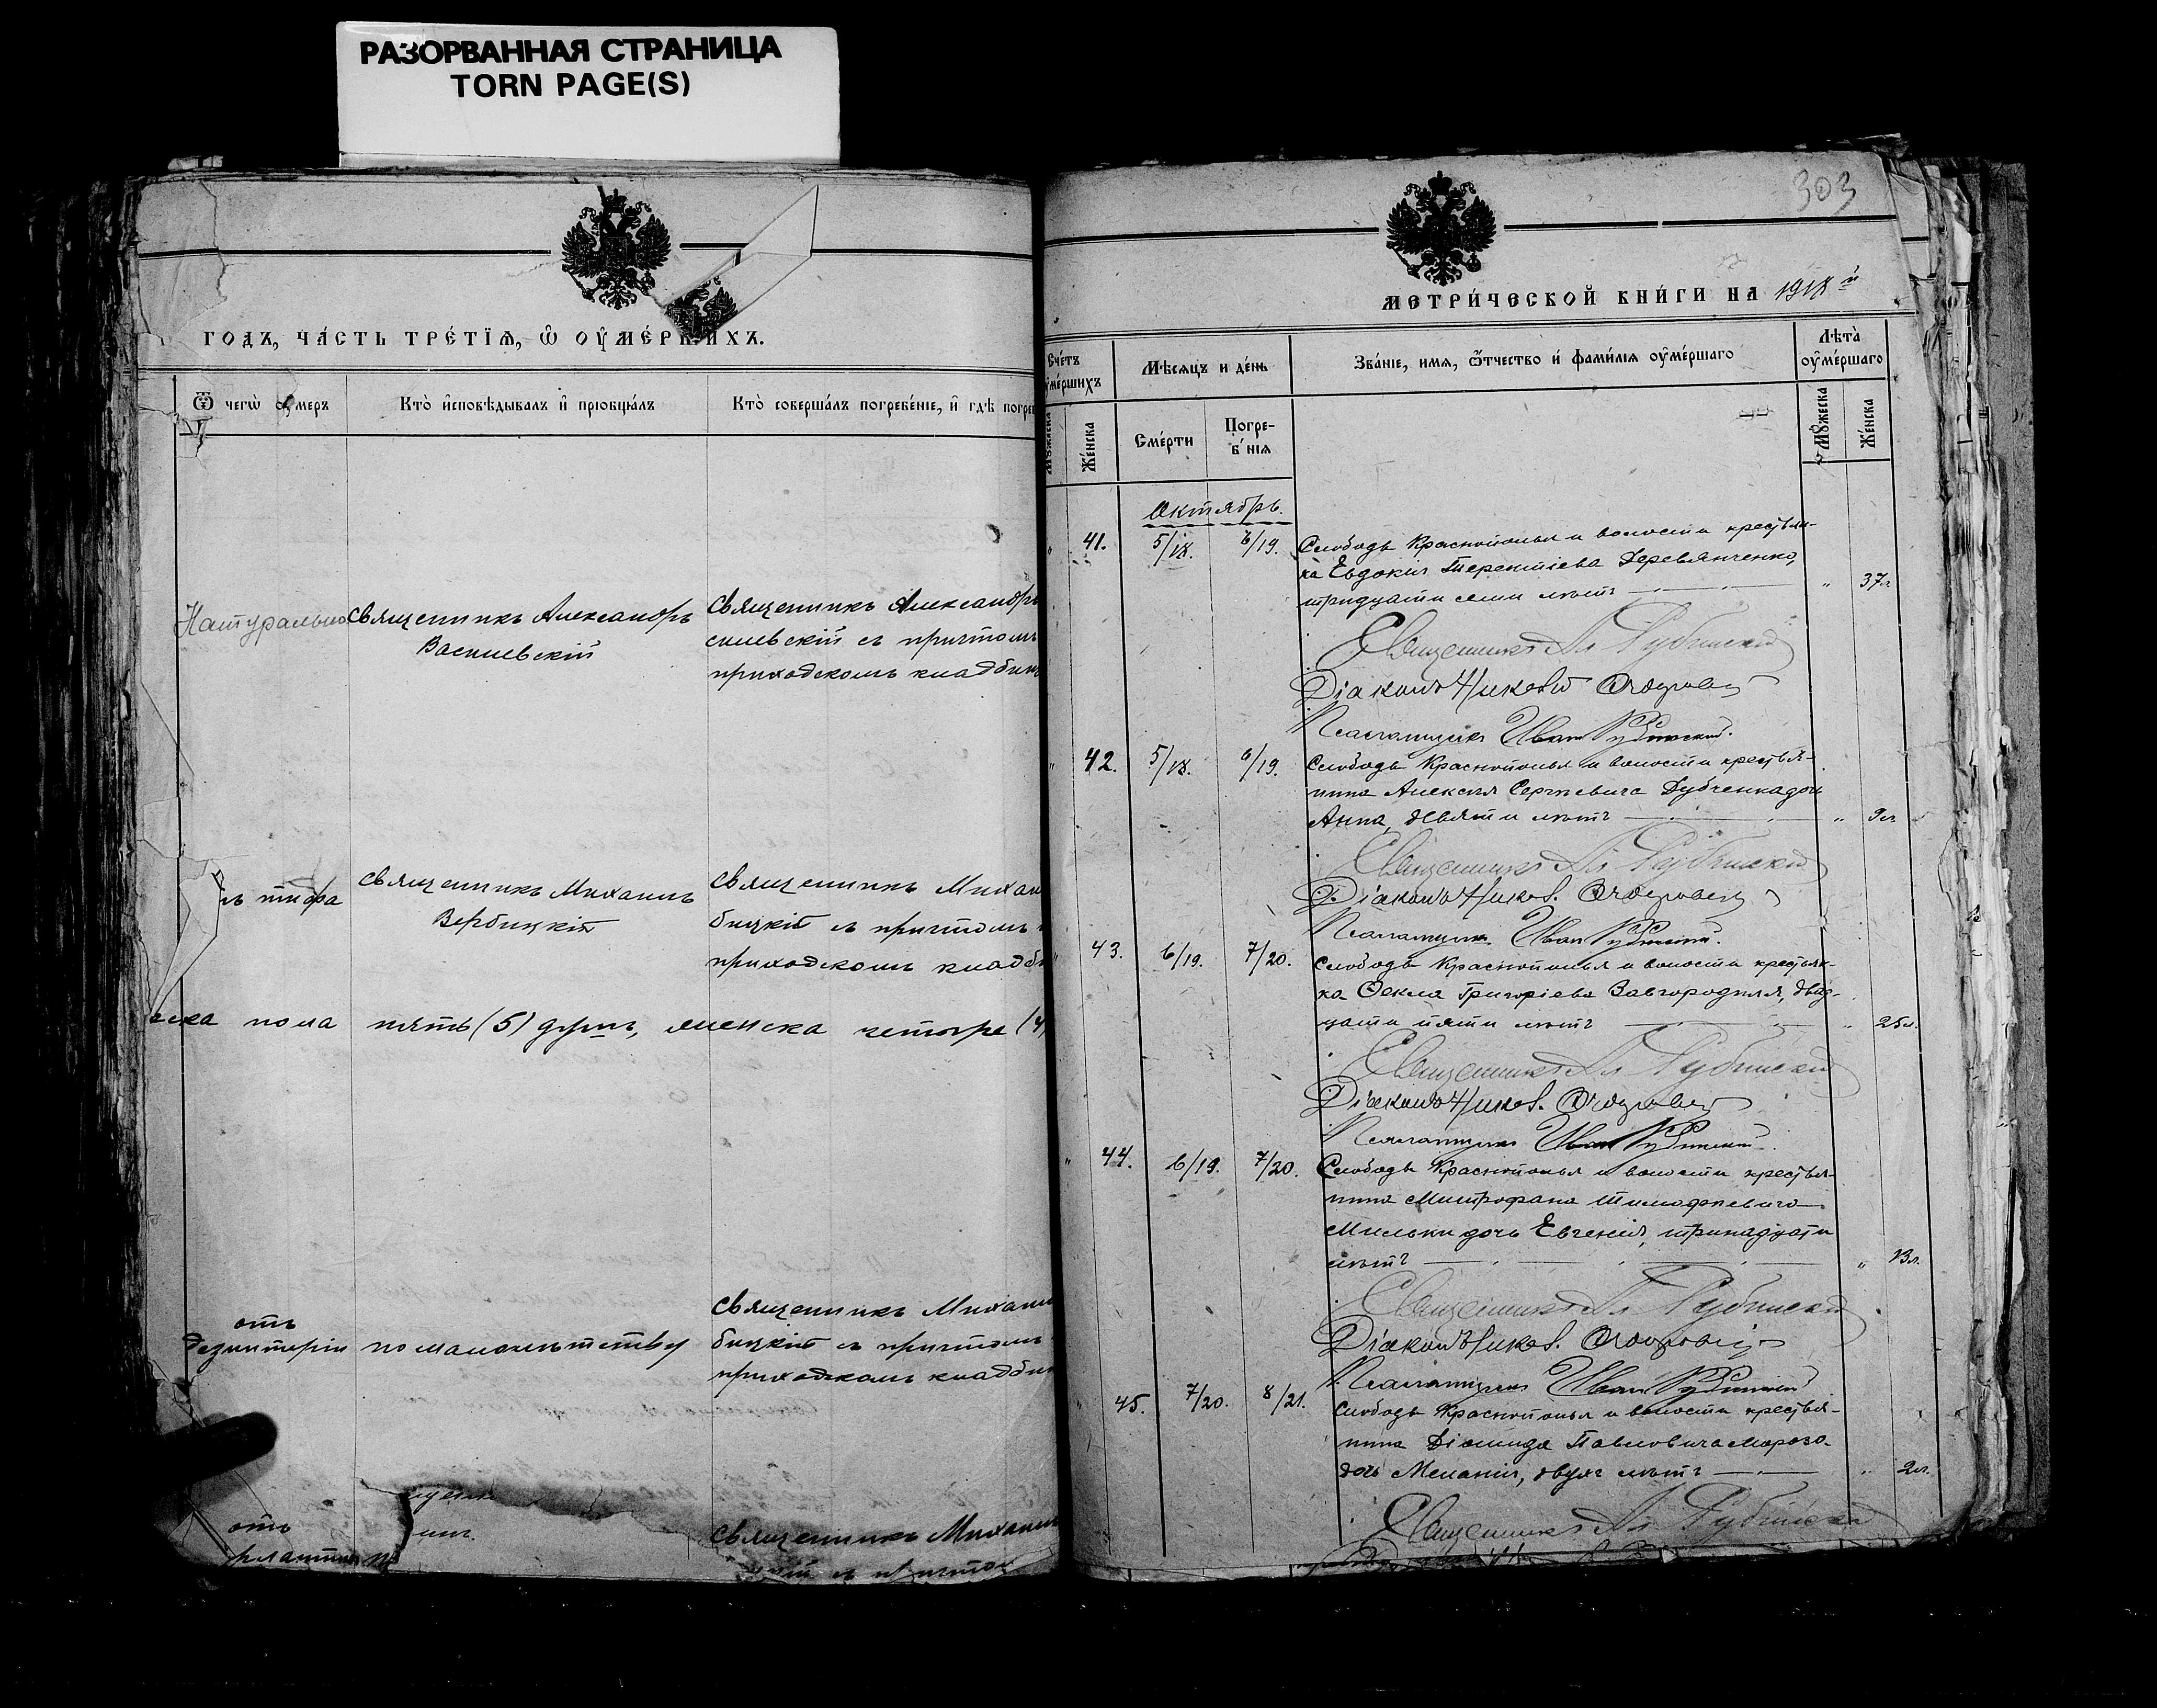 РАЗОРВАННАЯ СТРАНИЦА
TORN PAGE(S)
ГОДЪ, ЧА́СТЬ ТРЕ́ТІѦ, Ѡ҆ ОУ҆МЕ́РШИХЪ.
Ѿ чегѡ̀ оумеръ
Кто̀ и҆сповѣ́дывалъ и҆ прїобща́лъ
Кто̀ соверша́лъ погребе́нїе, и҆ гдѣ̀ погре
Натурально
Священникъ Александръ
Василевскій
Священникъ Александръ
силевскій съ причтомъ
приходскомъ кладбищ
тифа
Священникъ Михаилъ
Вербицкій
Священникъ Михаи
бицкій съ причтомъ
приходскомъ кладби
ска пола пять (5) душъ, женска четыре (4
отъ
дезинтеріи
по малолѣтству
Священникъ Михаил
бицкій съ причтомъ
приходскомъ кладби
отъ
Священникъ Михаил
кій съ причтом
303
МЕТРИ́ЧЕСКОЙ КНИ́ГИ НА 1918 й
Сче́тъ оумершихъ
Мѣ́сѧцъ и де́нь
Зва́нїе, имѧ, ѻ҆́тчество и҆ фами́лїѧ оу҆ме́ршаго
Лѣта̀ оу҆ме́ршаго
Мꙋжеска
Же́нска
Сме́рти
Погре-
б нїѧ
Мꙋ́жеска
Же́нска
Октябрь.
41. 5/18. 6/19. Слободы Краснополья и волости крестьян-
ка Евдокія Терентіева Деревянченко,
тридцати семи лѣтъ " 37л.
Священникъ Ал Рубинскій
Діаконъ Никол
Псаломщикъ Иван Рубинский.
42. 5/18. 6/19. Слободы Краснополья и волости крестья-
нина Алексѣя Сергѣевича Дубченка дочь
Анна, девяти лѣтъ " 9л.
Священникъ Ал Рубинскій
Діаконъ Никол.
Псаломщик Иван Рубинский.
43. 6/19. 7/20. Слободы Краснополья и волости крестьян-
ка Ѳекла Григоріева Завгородняя, двад-
цати пяти лѣтъ " 25л.
Священникъ Ал Рубинскій
Діаконъ Никол.
Псаломщикъ Иван Рубинский.
44. 6/19. 7/20. Слободы Краснополья и волости крестья-
нина Митрофана Тимофѣевича
Мильки дочь Евгенія, тринадцати
лѣтъ " 13л.
Священникъ Ал Рубинскій
Діаконъ Никол.
Псаломщикъ Иван Рубинский
45. 7/20. 8/21. Слободы Краснополья и волости крестья-
нина Діомида Павловича Мороза
дочь Меланія, двухъ лѣтъ " 2л.
Священникъ Ал Рубинскій